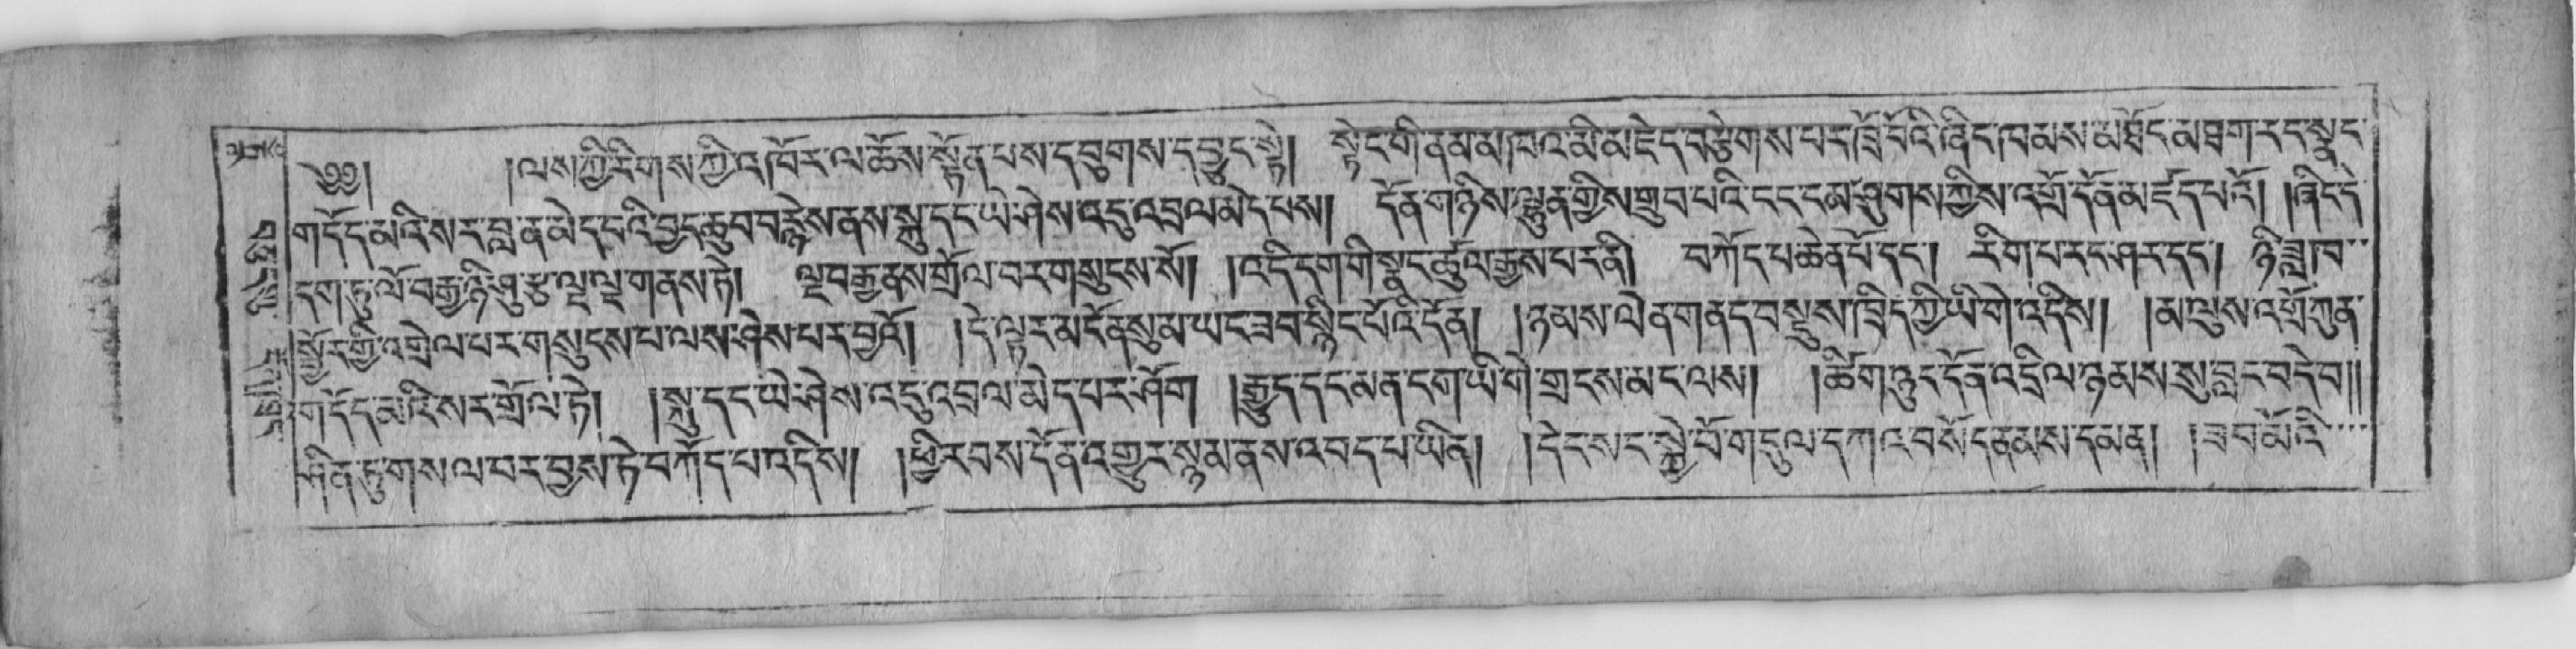 ༄༅། །ལས་ཀྱི་རིགས་ཀྱི་འཁོར་ལ་ཆོས་སྟོན་པས་དབུགས་དབྱུང་སྟེ། སྟེང་གི་ནམ་མཁའ་མི་མཇེད་བརྩེགས་པར་ཁྲོ་བོའི་ཞིང་ཁམས་མཐོང་མཐག་རང་སྣང་
གདོད་མའི་ས་ར་བླ་ན་མེད་པའི་བྱང་ཆུབ་བརྙེས་ནས་སྐུ་དང་ཡེ་ཤེས་འདུ་འབྲལ་མེད་པས། དོན་གཉིས་ལྷུན་གྱིས་གྲུབ་པའི་ངང་ངམ་ཤུགས་ཀྱིས་འགྲོ་དོན་མཛད་པའོ། །ཞིང་དེ་
དག་ཏུ་ལོ་བརྒྱ་ཉི་ཤུ་རྩ་ལྔ་ལྔ་གནས་ཏེ། ལྔ་བརྒྱ་ནས་གྲོལ་བར་གསུངས་སོ། །འདི་དག་གི་སྣང་ཚུལ་རྒྱས་པར་ནི། བཀོད་པ་ཆེན་པོ་དང་། རིག་པ་རང་ཤར་དང་། ཉི་ཟླ་ཁ་
སྦྱོར་གྱི་འགྲེལ་པར་གསུངས་པ་ལས་ཤེས་པར་བྱའོ། །དེ་ལྟར་མངོན་སུམ་ཡང་ཟབ་སྙིང་པོའི་དོན། །ཉམས་ལེན་གནད་བསྡུས་ཁྲིད་ཀྱི་ཡི་གེ་འདིས། །མ་ལུས་འགྲོ་ཀུན་
གདོད་མའི་ས་ར་གྲོལ་ཏེ། །སྐུ་དང་ཡེ་ཤེས་འདུ་འབྲལ་མེད་པར་ཤོག །རྒྱུད་དང་མན་ངག་ཡི་གེ་གྲངས་མང་ལས། །ཚིག་ཉུང་དོན་འདྲིལ་ཉམས་སུ་བླང་བདེ་བ།།
ཤིན་ཏུ་གསལ་བར་བྱས་ཏེ་བཀོད་པ་འདིས། །ཕྱི་རབས་དོན་འགྱུར་སྙམ་ནས་འབད་པ་ཡིན། །དེང་སང་སྐྱེ་བོ་གདུལ་དཀའ་བསོད་ནམས་དམན། །ཟབ་མོའི་